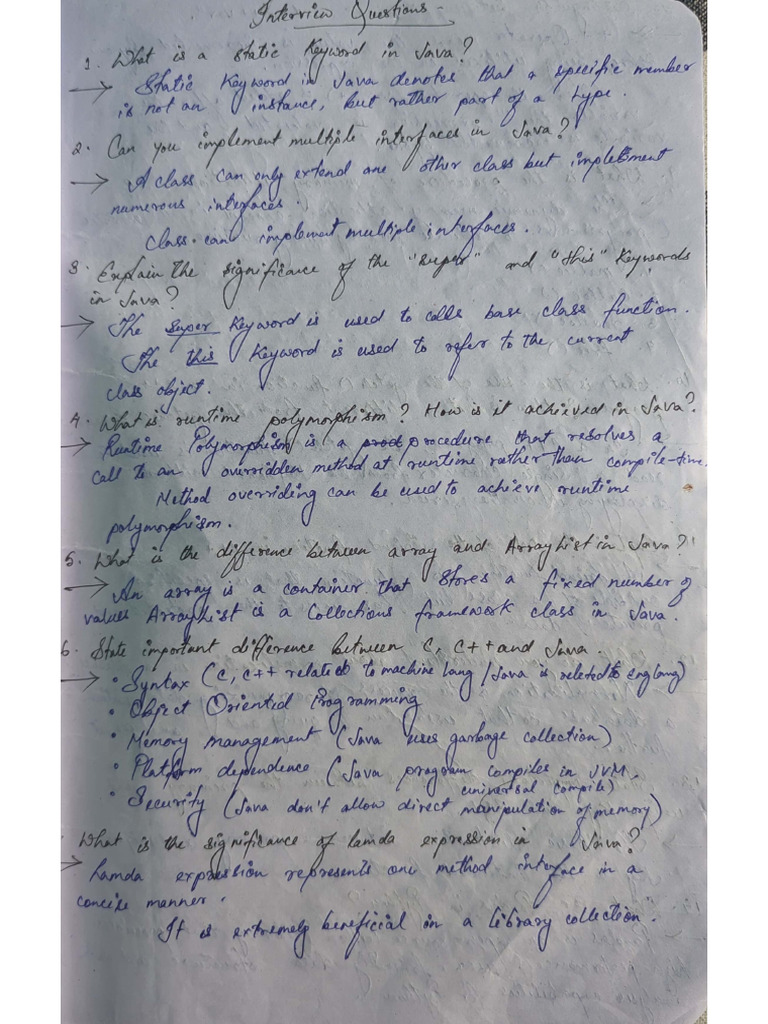 Interview Questions -
1. What is a static Keyword in Java?
→ Static Keyword in Java denotes that a specific member
is not an instance, but rather part of a type.
2. Can you implement multiple interfaces in Java?
→ A class can only extend one other class but implement
numerous interfaces.
Class can implement multiple interfaces.
3. Explain the significance of the "super" and "this" Keywords
in Java?
→ The super Keyword is used to calls base class function.
The this Keyword is used to refer to the current
class object.
4. What is runtime polymorphism? How is it achieved in Java?
→ Runtime Polymorphism is a procedure that resolves a
call to an overridden method at runtime rather than compile-time.
Method overriding can be used to achieve runtime
polymorphism.
5. What is the difference between array and ArrayList in Java?
→ An array is a container that stores a fixed number of
values ArrayList is a Collections framework class in Java.
6. State important difference between C, C++ and Java.
→ • Syntax (C, C++ related to machine lang / Java is releted to eng lang)
• Object Oriented Programming
• Memory management (Java uses garbage collection)
• Platform dependence (Java program compiles in JVM,
universal compile)
• Security (Java don't allow direct manipulation of memory)
What is the significance of lamda expression in Java?
→ Lamda expression represents one method interface in a
concise manner.
It is extremely beneficial in a library collection.